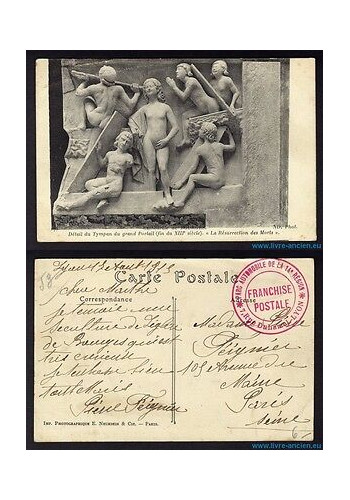 ND. Phot.
Détail du Tympan du grand Portail (fin du XIIIe siècle). « La Résurrection des Morts ».
www.livre-ancien.eu
Lyon 13 Août 1915
Carte Postale
Correspondance
Adresse
PARC AUTOMOBILE DE LA 14e RÉGION
FRANCHISE
POSTALE
LYON
chère Marthe
je t'envoie une
sculpture de l'église
de Bourges qui est
très curieuse
Madame
Peignier
105 Avenue du
Maine
Paris
Seine
Pierre Peignier
IMP. PHOTOGRAPHIQUE E. NEURDEIN & Cie. - PARIS.
www.livre-ancien.eu